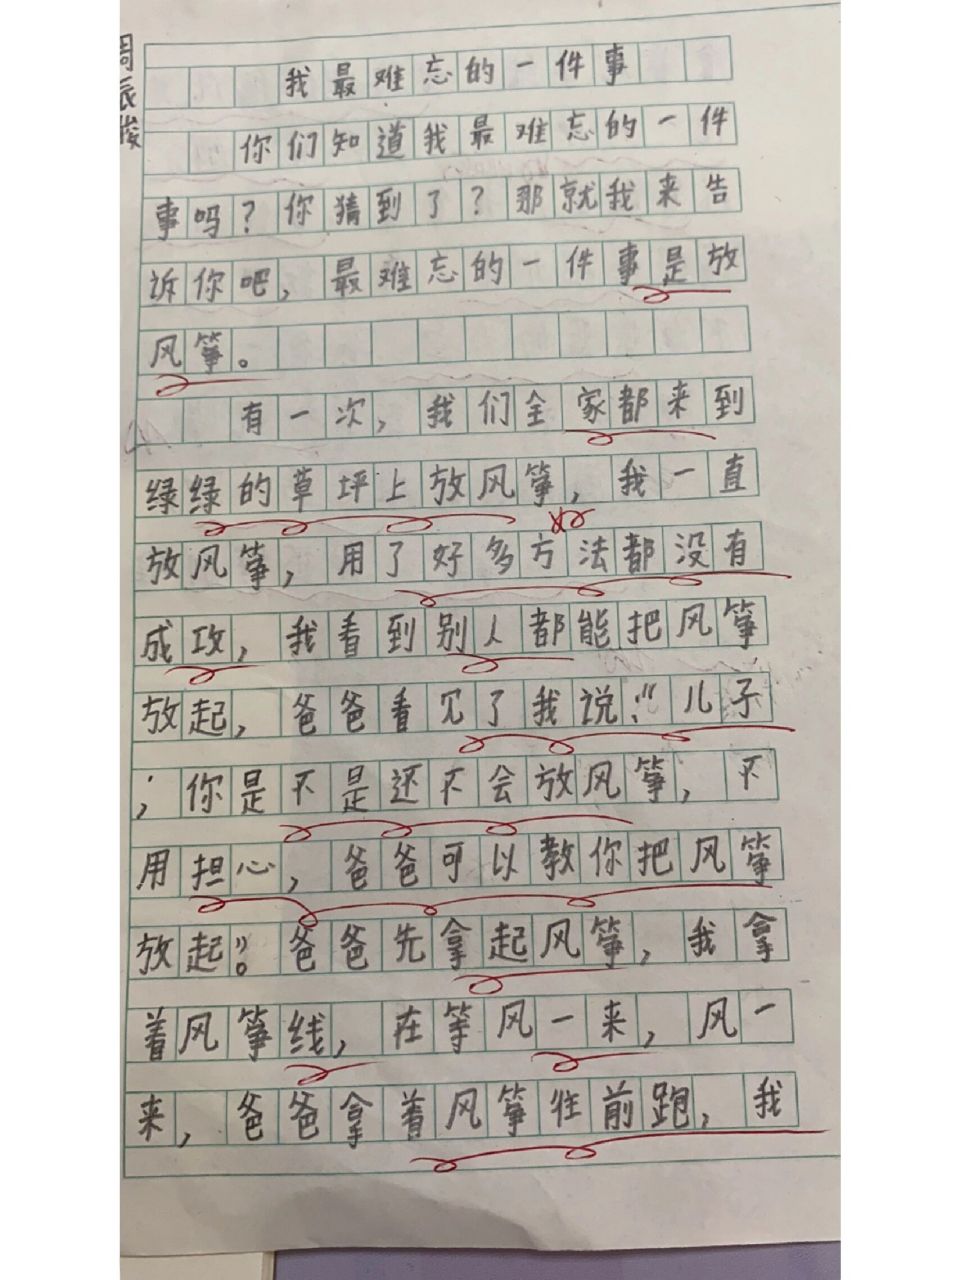 周辰骏
我最难忘的一件事
你们知道我最难忘的一件
事吗？你猜到了？那就我来告
诉你吧，最难忘的一件事是放
风筝。
有一次，我们全家都来到
绿绿的草坪上放风筝，我一直
放风筝，用了好多方法都没有
成攻，我看到别人都能把风筝
放起，爸爸看见了我说：“儿子
，你是不是还不会放风筝，不
用担心，爸爸可以教你把风筝
放起。”爸爸先拿起风筝，我拿
着风筝线，在等风一来，风一
来，爸爸拿着风筝往前跑，我